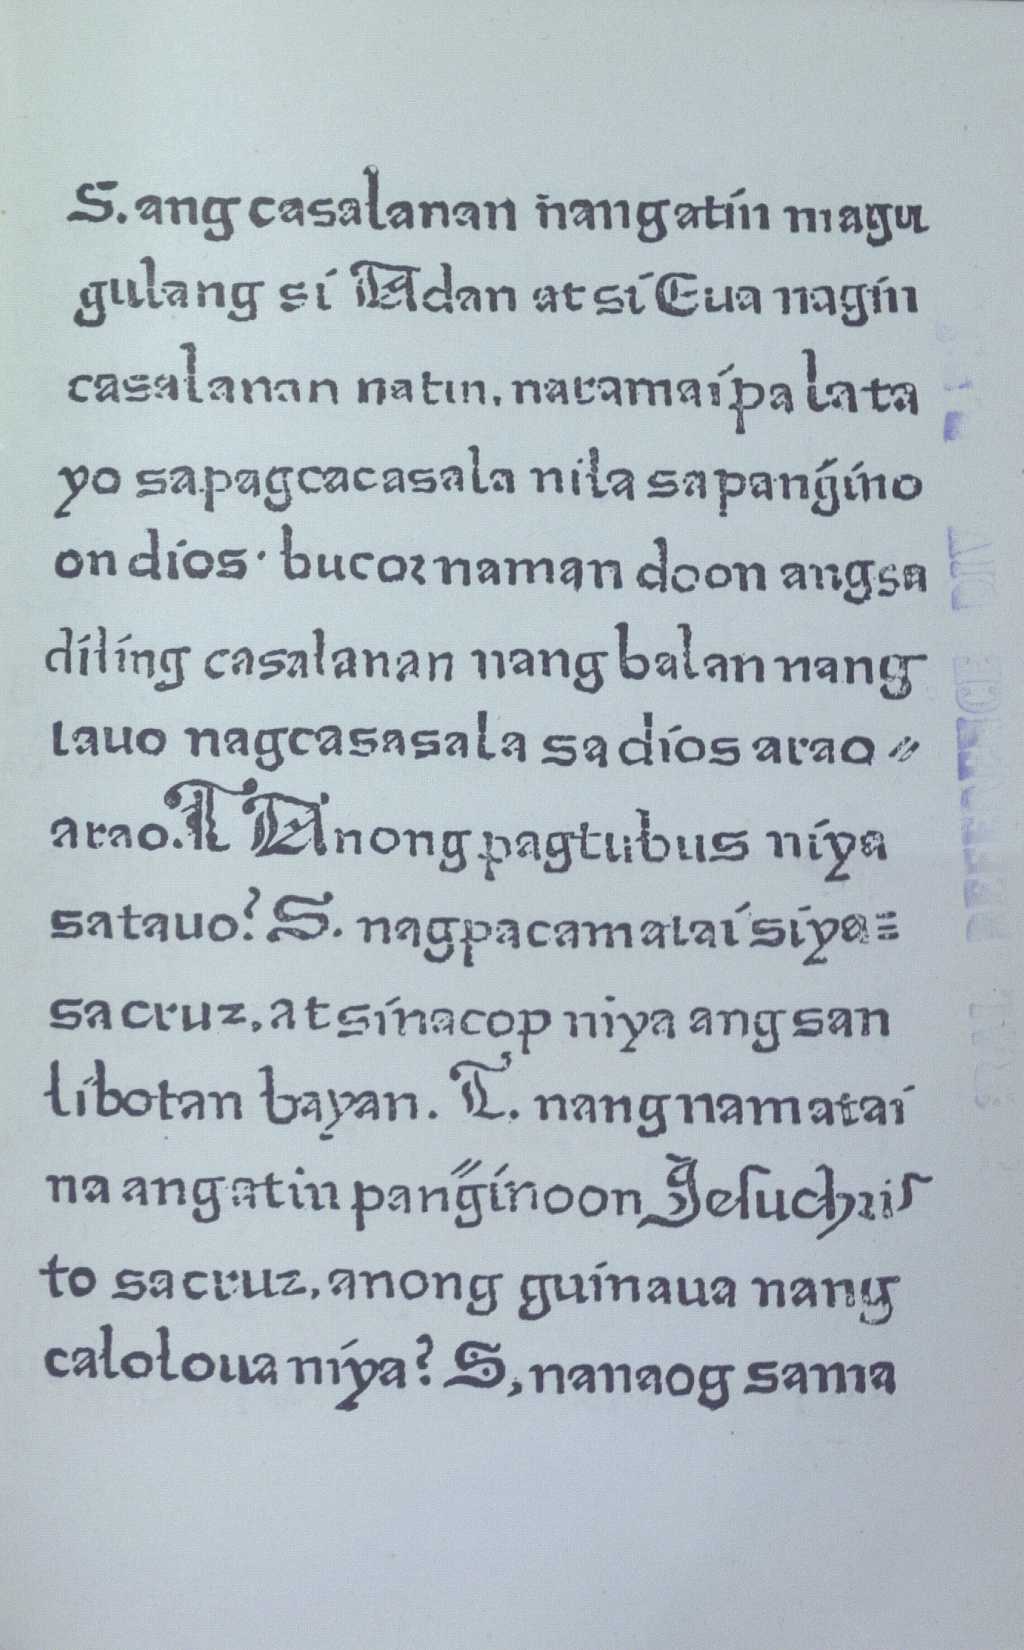 S. ang casalanan nang atin magu
gulang si Adan at si Eua nagin
casalanan natin, naramai pa la ta
yo sa pagcacasala nila sa pang̃ino
on dios · bucor naman doon ang sa
diling casalanan nang balan nang
tauo nagcasasala sa dios arao //
arao. T Anong pagtubus niya
sa tauo? S. nagpacamatai siya =
sa cruz, at sinacop niya ang san
libotan bayan. T. nang namatai
na ang atin pang̃inoon Jesuchris
to sa cruz, anong guinaua nang
caloloua niya? S, nanaog sa ma